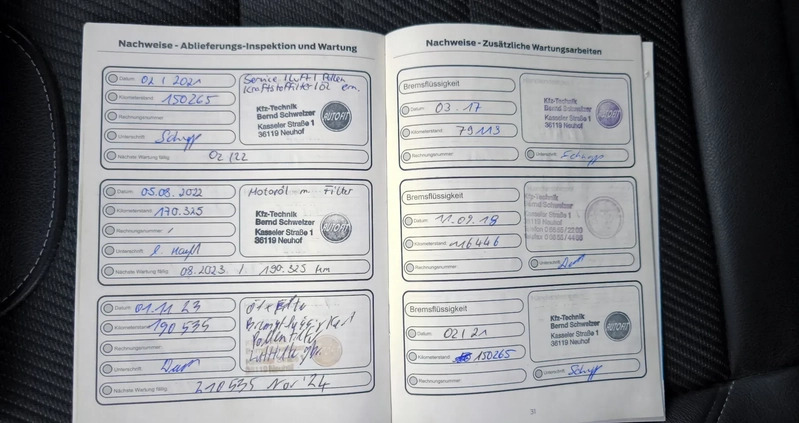 Nachweise - Ablieferungs-Inspektion und Wartung
Datum: 02 / 2021
Kilometerstand: 150265
Rechnungsnummer:
Unterschrift:
Nächste Wartung fällig: 02/22
Service / Luft / Pollen
Kraftstoffilter / Öl ern.
Kfz-Technik
Bernd Schweizer
Kasseler Straße 1
36119 Neuhof
AUTOFIT
Datum: 05.08.2022
Kilometerstand: 170.325
Rechnungsnummer: /
Unterschrift:
Nächste Wartung fällig: 08.2023 / 190.325 km
Motoröl m. Filter
Kfz-Technik
Bernd Schweizer
Kasseler Straße 1
36119 Neuhof
AUTOFIT
Datum: 01.11.23
Kilometerstand: 190535
Rechnungsnummer:
Unterschrift:
Nächste Wartung fällig: 210535 Nov '24
Bremsflüssigkeit
Pollenfilter
Nachweise - Zusätzliche Wartungsarbeiten
Bremsflüssigkeit
Datum: 03.17
Kilometerstand: 79113
Rechnungsnummer:
Unterschrift:
Kfz-Technik
Bernd Schweizer
Kasseler Straße 1
36119 Neuhof
AUTOFIT
Bremsflüssigkeit
Datum: 11.09.18
Kilometerstand: 116446
Rechnungsnummer:
Unterschrift:
Kfz-Technik
Bernd Schweizer
Kasseler Straße 1
36119 Neuhof
Bremsflüssigkeit
Datum: 02/21
Kilometerstand: 150265
Rechnungsnummer:
Unterschrift:
Kfz-Technik
Bernd Schweizer
Kasseler Straße 1
36119 Neuhof
AUTOFIT
31